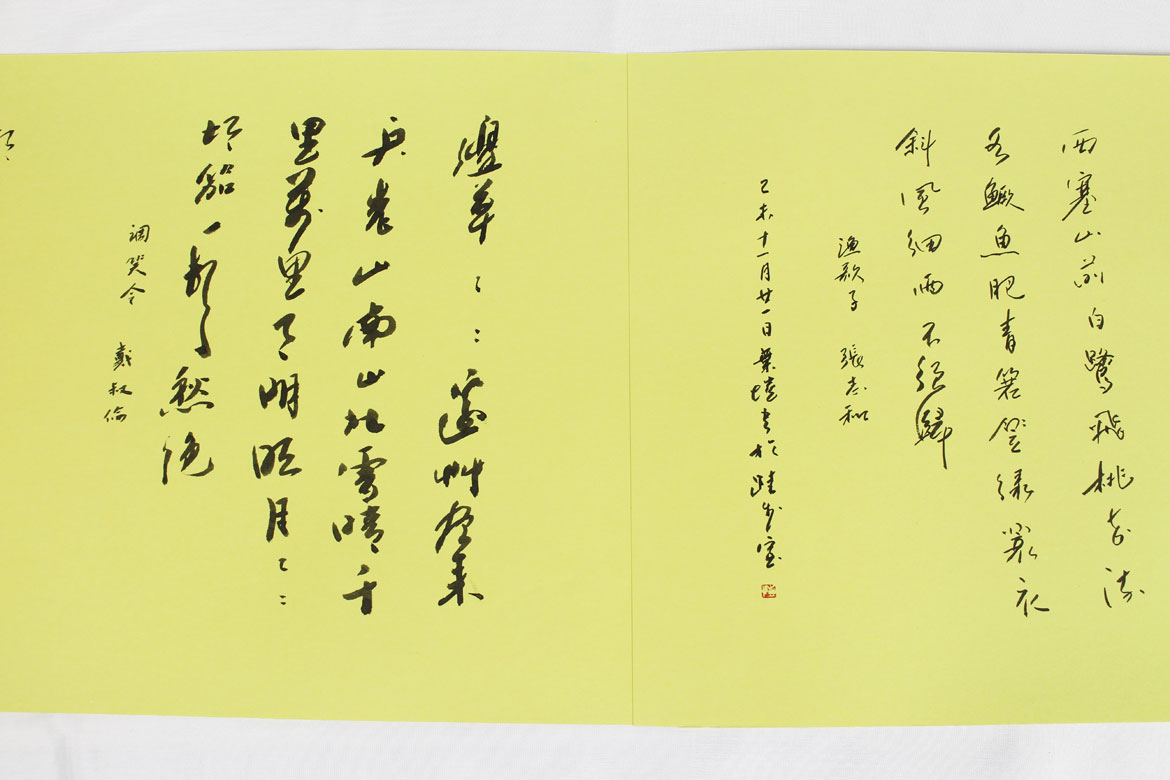 西塞山前白鷺飛桃花流
水鱖魚肥青箬笠綠蓑衣
斜風細雨不須歸
漁歌子 張志和
己未十一月廿一日葉書於跬步室
邊草〻〻邊艸盡来
兵老山南山北雪晴千
里萬里月明明月〻〻
胡笳一聲愁絕
調笑令 戴叔倫